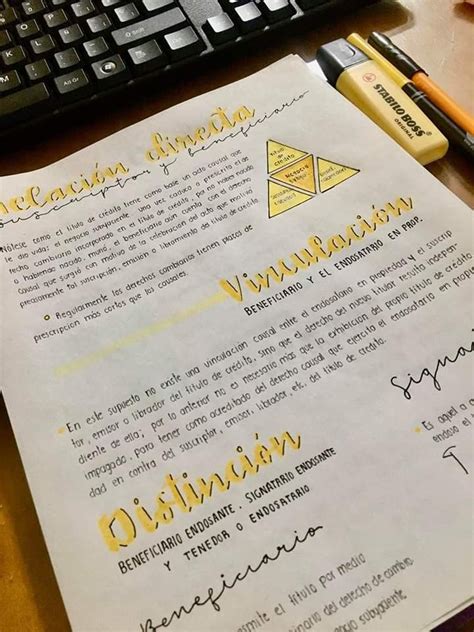 elación directa
suscriptor y beneficiario
Nótese como el título de crédito tiene como base un acto causal que
le dio vida: el negocio subyacente. Una vez caduco o prescrito el de
recho cambiario incorporado en el título de crédito, por no haber nacido
o habiendo nacido, murió, el beneficiario aún cuenta con el derecho
causal que surgió con motivo de la celebración del acto que motivó
precisamente tal suscripción, emisión o libramiento del título de crédito
Regularmente los derechos cambiarios tienen plazos de
prescripción más cortos que los causales.
Título
de
crédito
NEGOCIO
STABILO BOSS
ORIGINAL
Vinculación
BENEFICIARIO Y EL ENDOSATARIO EN PROP.
En este supuesto no existe una vinculación causal entre el endosatario en propiedad y el suscrip
tor, emisor o librador del título de crédito, sino que el derecho del nuevo titular resulta indepen-
diente de ella; por lo anterior no es necesario más que la exhibición del propio título de crédito
impagado, para tener como acreditado el derecho causal que ejercita el endosatario en propie
dad en contra del suscriptor, emisor, librador, etc. del título de crédito.
Distinción
BENEFICIARIO ENDOSANTE, SIGNATARIO ENDOSANTE
Y TENEDOR O ENDOSATARIO
Signa
Es aquel a q
endoso el
T
Beneficiario
smite el título por medio
inario del derecho de cambio
ocio subyacente